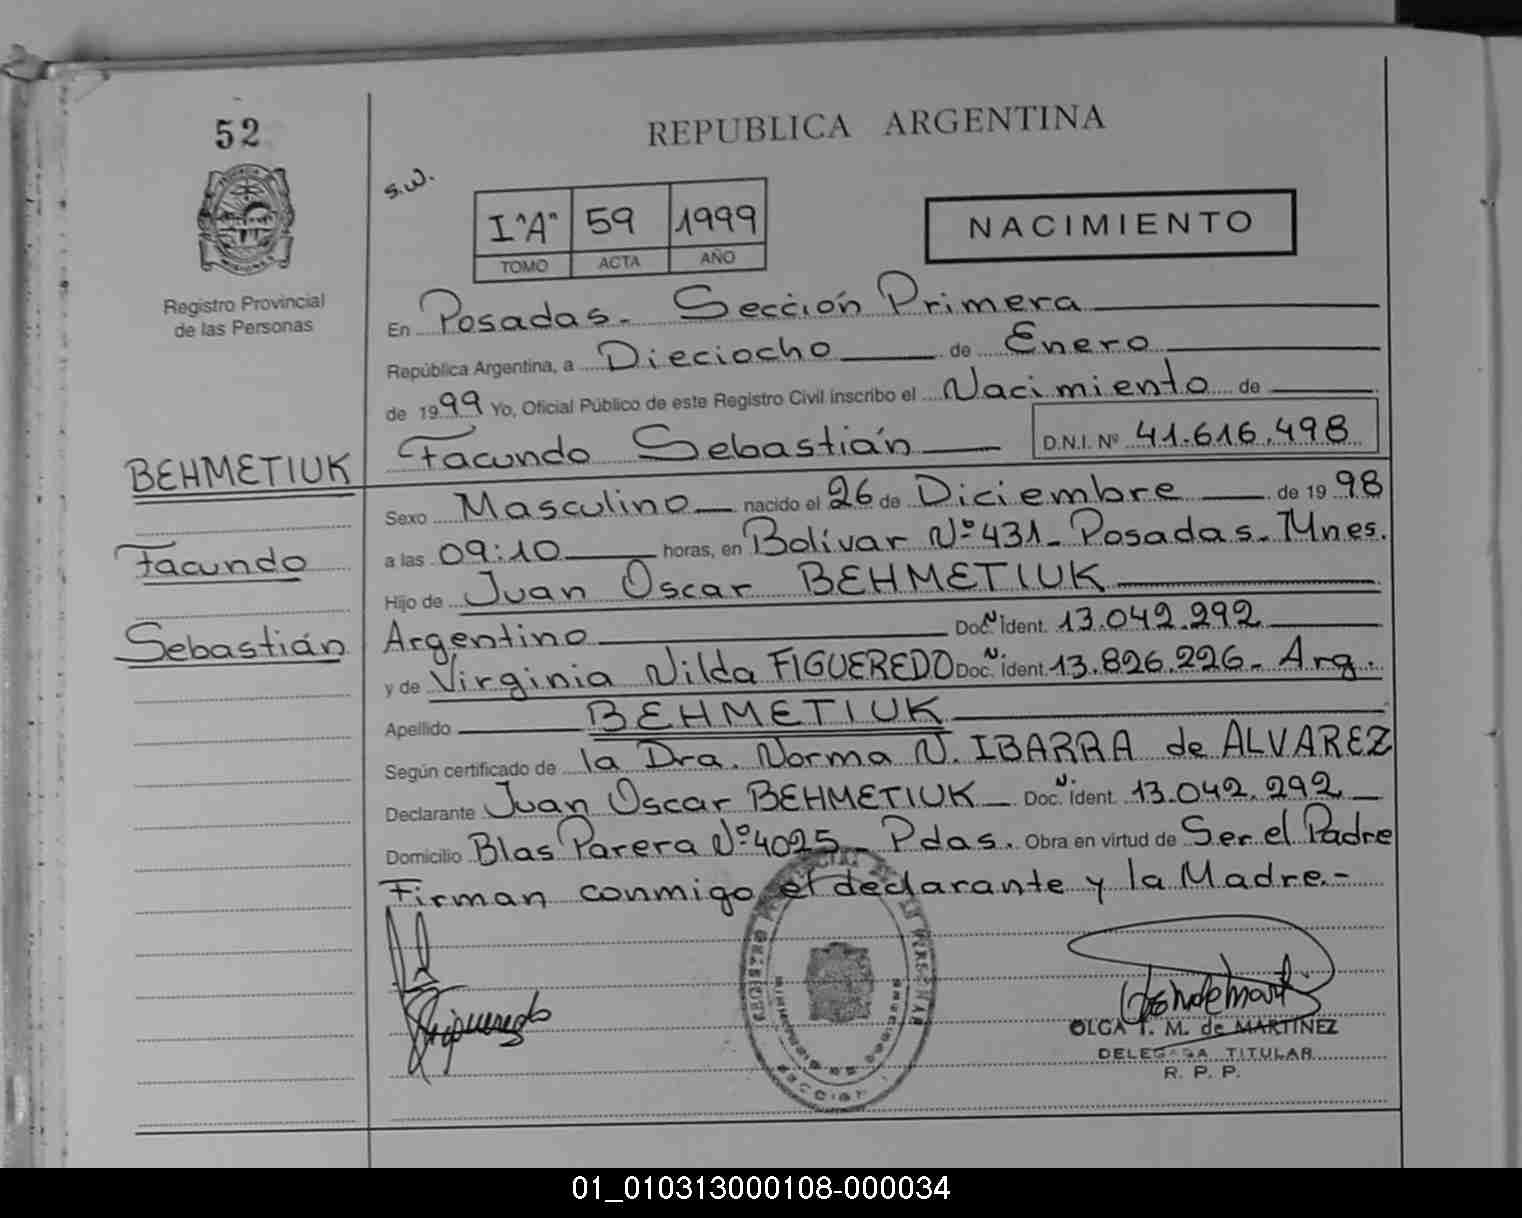 52
REPUBLICA ARGENTINA
s.w.
I "A" 59 1999
TOMO ACTA AÑO
NACIMIENTO
Registro Provincial
de las Personas
En Posadas. Sección Primera
República Argentina, a Dieciocho de Enero
de 1999 Yo, Oficial Público de este Registro Civil inscribo el Nacimiento de
Facundo Sebastián D.N.I. Nº 41.616.498
BEHMETIUK
Facundo
Sebastián
Sexo Masculino nacido el 26 de Diciembre de 1998
a las 09:10 horas, en Bolívar Nº 431 - Posadas - Mnes.
Hijo de Juan Oscar BEHMETIUK
Argentino Doc. N. Ident. 13.042.292
y de Virginia Nilda FIGUEREDO Doc. N. Ident. 13.826.226 - Arg.
Apellido BEHMETIUK
Según certificado de la Dra. Norma N. IBARRA de ALVAREZ
Declarante Juan Oscar BEHMETIUK Doc. N. Ident. 13.042.292
Domicilio Blas Parera Nº 4025 - Pdas. Obra en virtud de Ser el Padre
Firman conmigo el declarante y la Madre.-
Figueredo
OLGA T. M. de MARTINEZ
DELEGADA TITULAR
R. P. P.
01_010313000108-000034